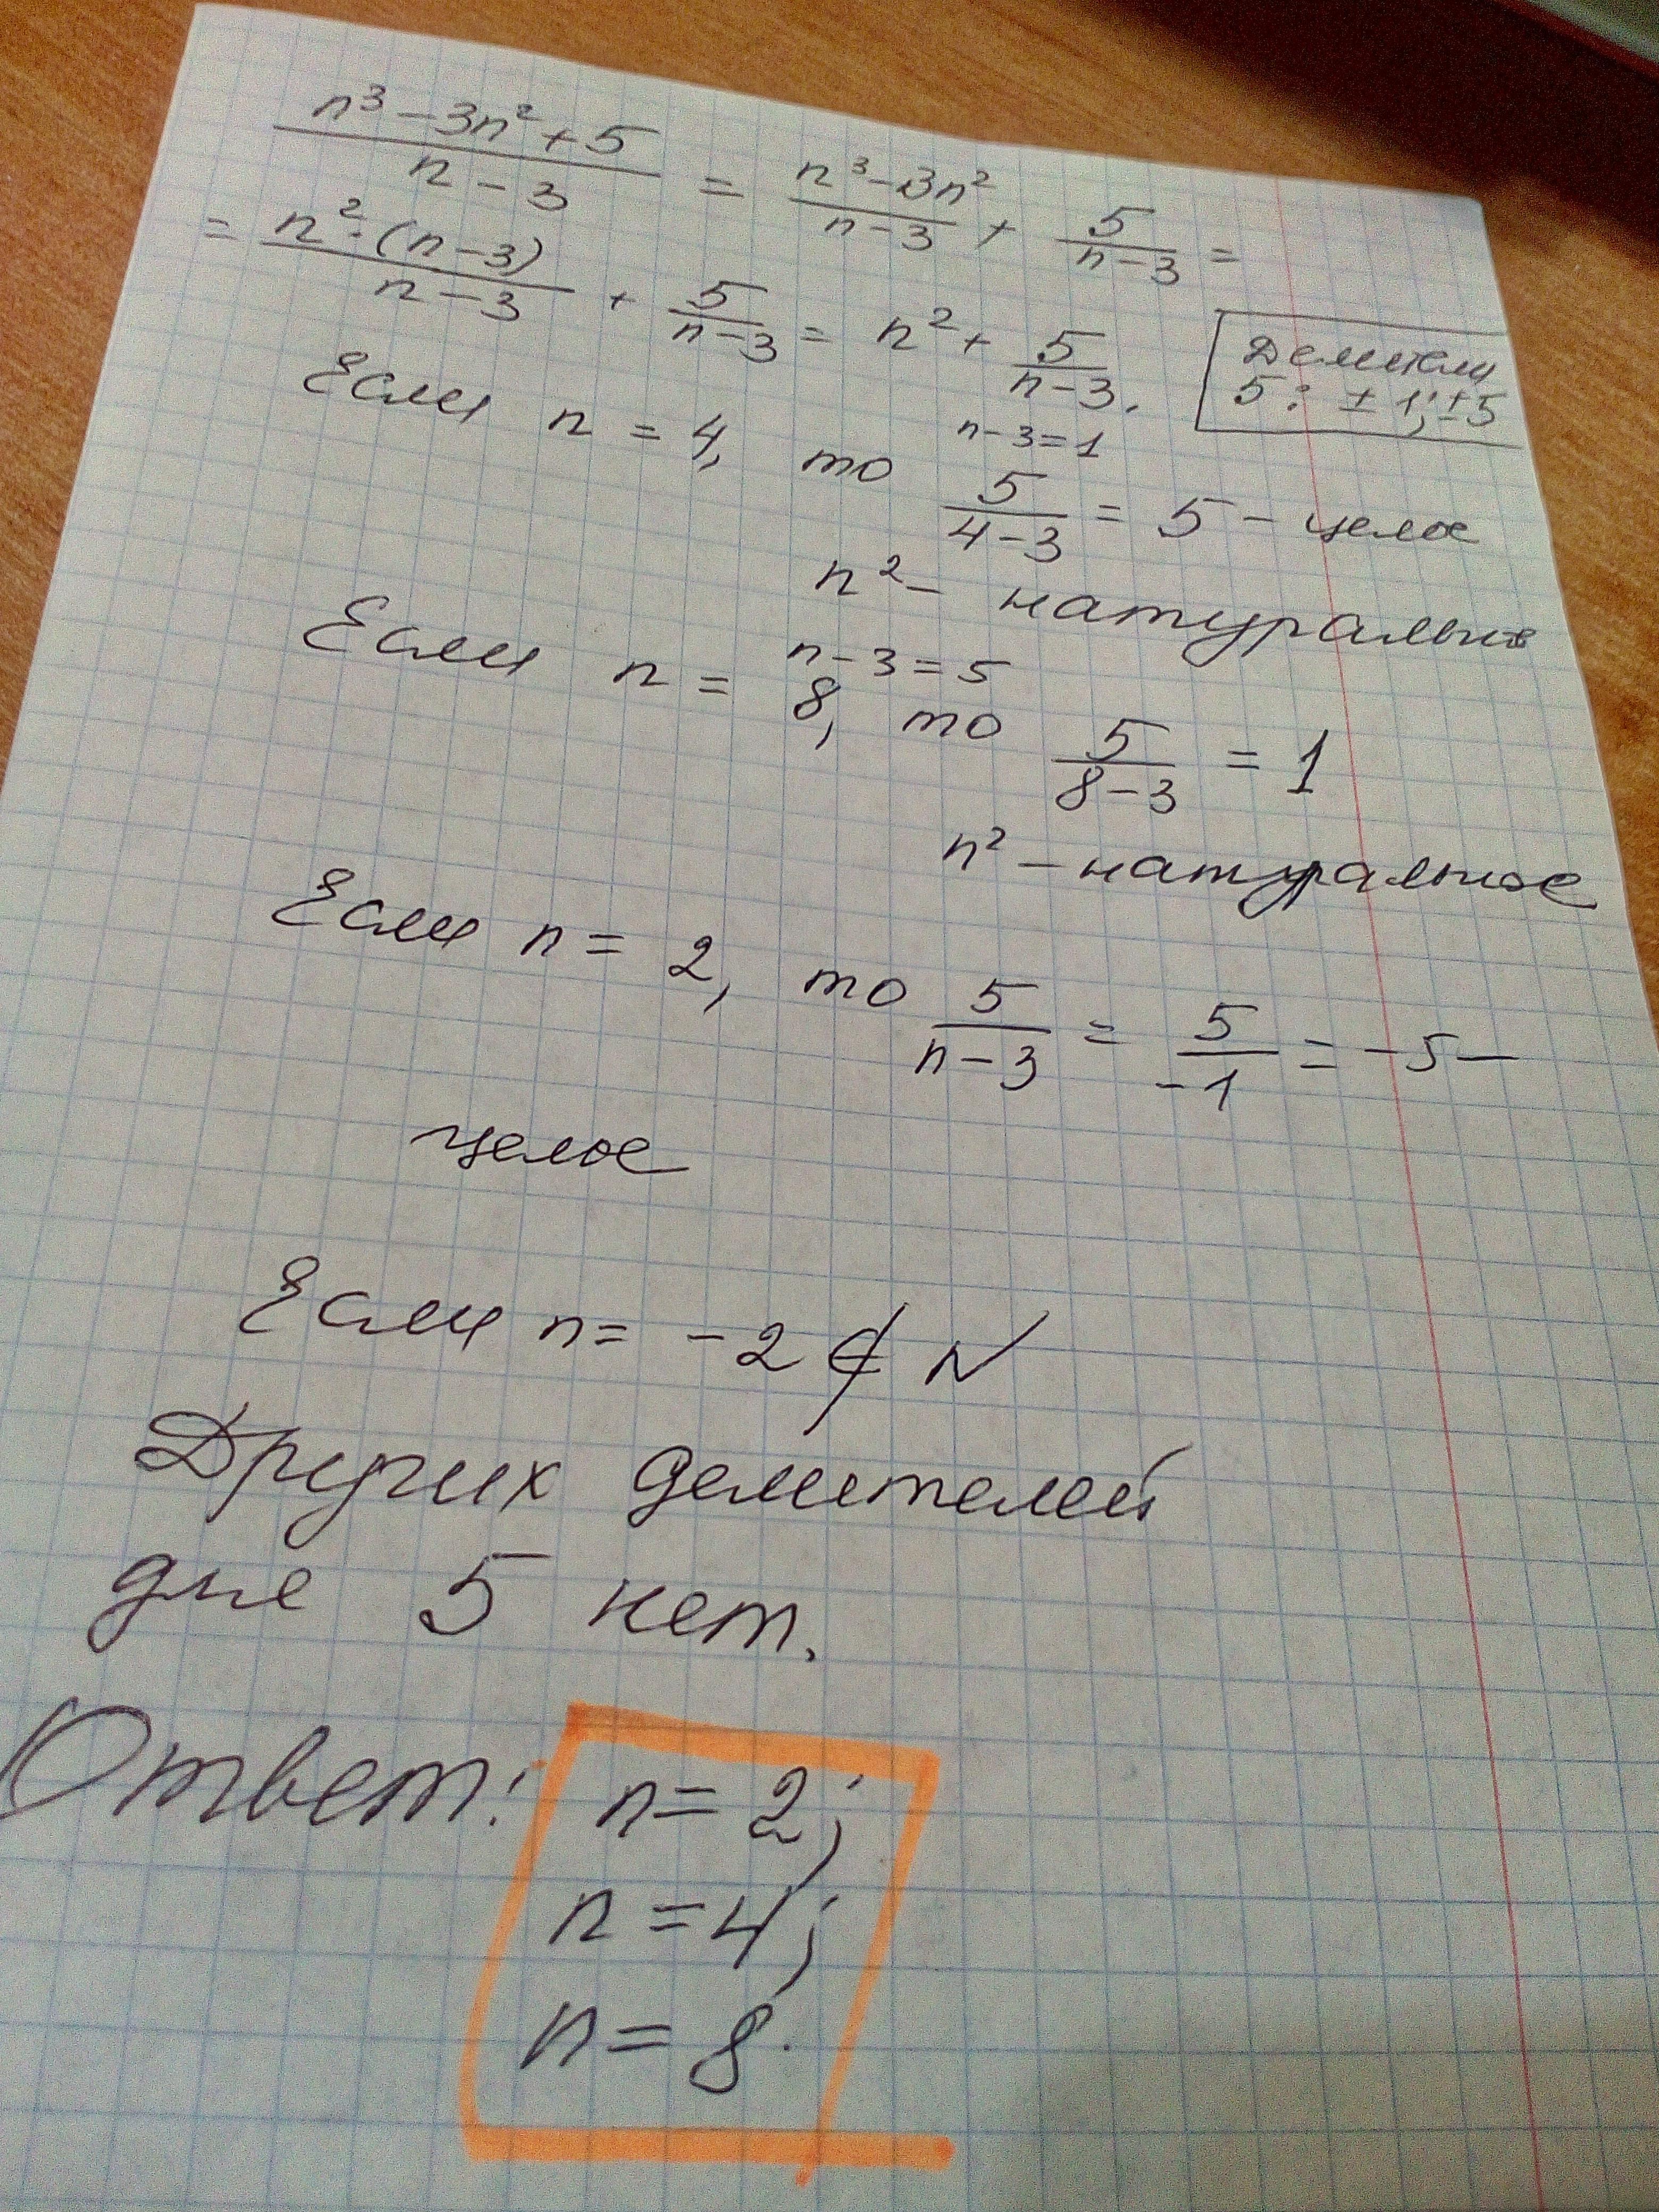 (n³-3n²+5)/(n-3) = (n³-3n²)/(n-3) + 5/(n-3) =
= (n²·(n-3))/(n-3) + 5/(n-3) = n² + 5/(n-3).
Делители
5: ±1; ±5
n-3=1
Если n = 4, то 5/(4-3) = 5 - целое
n² - натуральное
n-3=5
Если n = 8, то 5/(8-3) = 1
n² - натуральное
Если n = 2, то 5/(n-3) = 5/(-1) = -5 -
целое
Если n = -2 ∉ N
Других делителей
для 5 нет.
Ответ: n = 2;
n = 4;
n = 8.